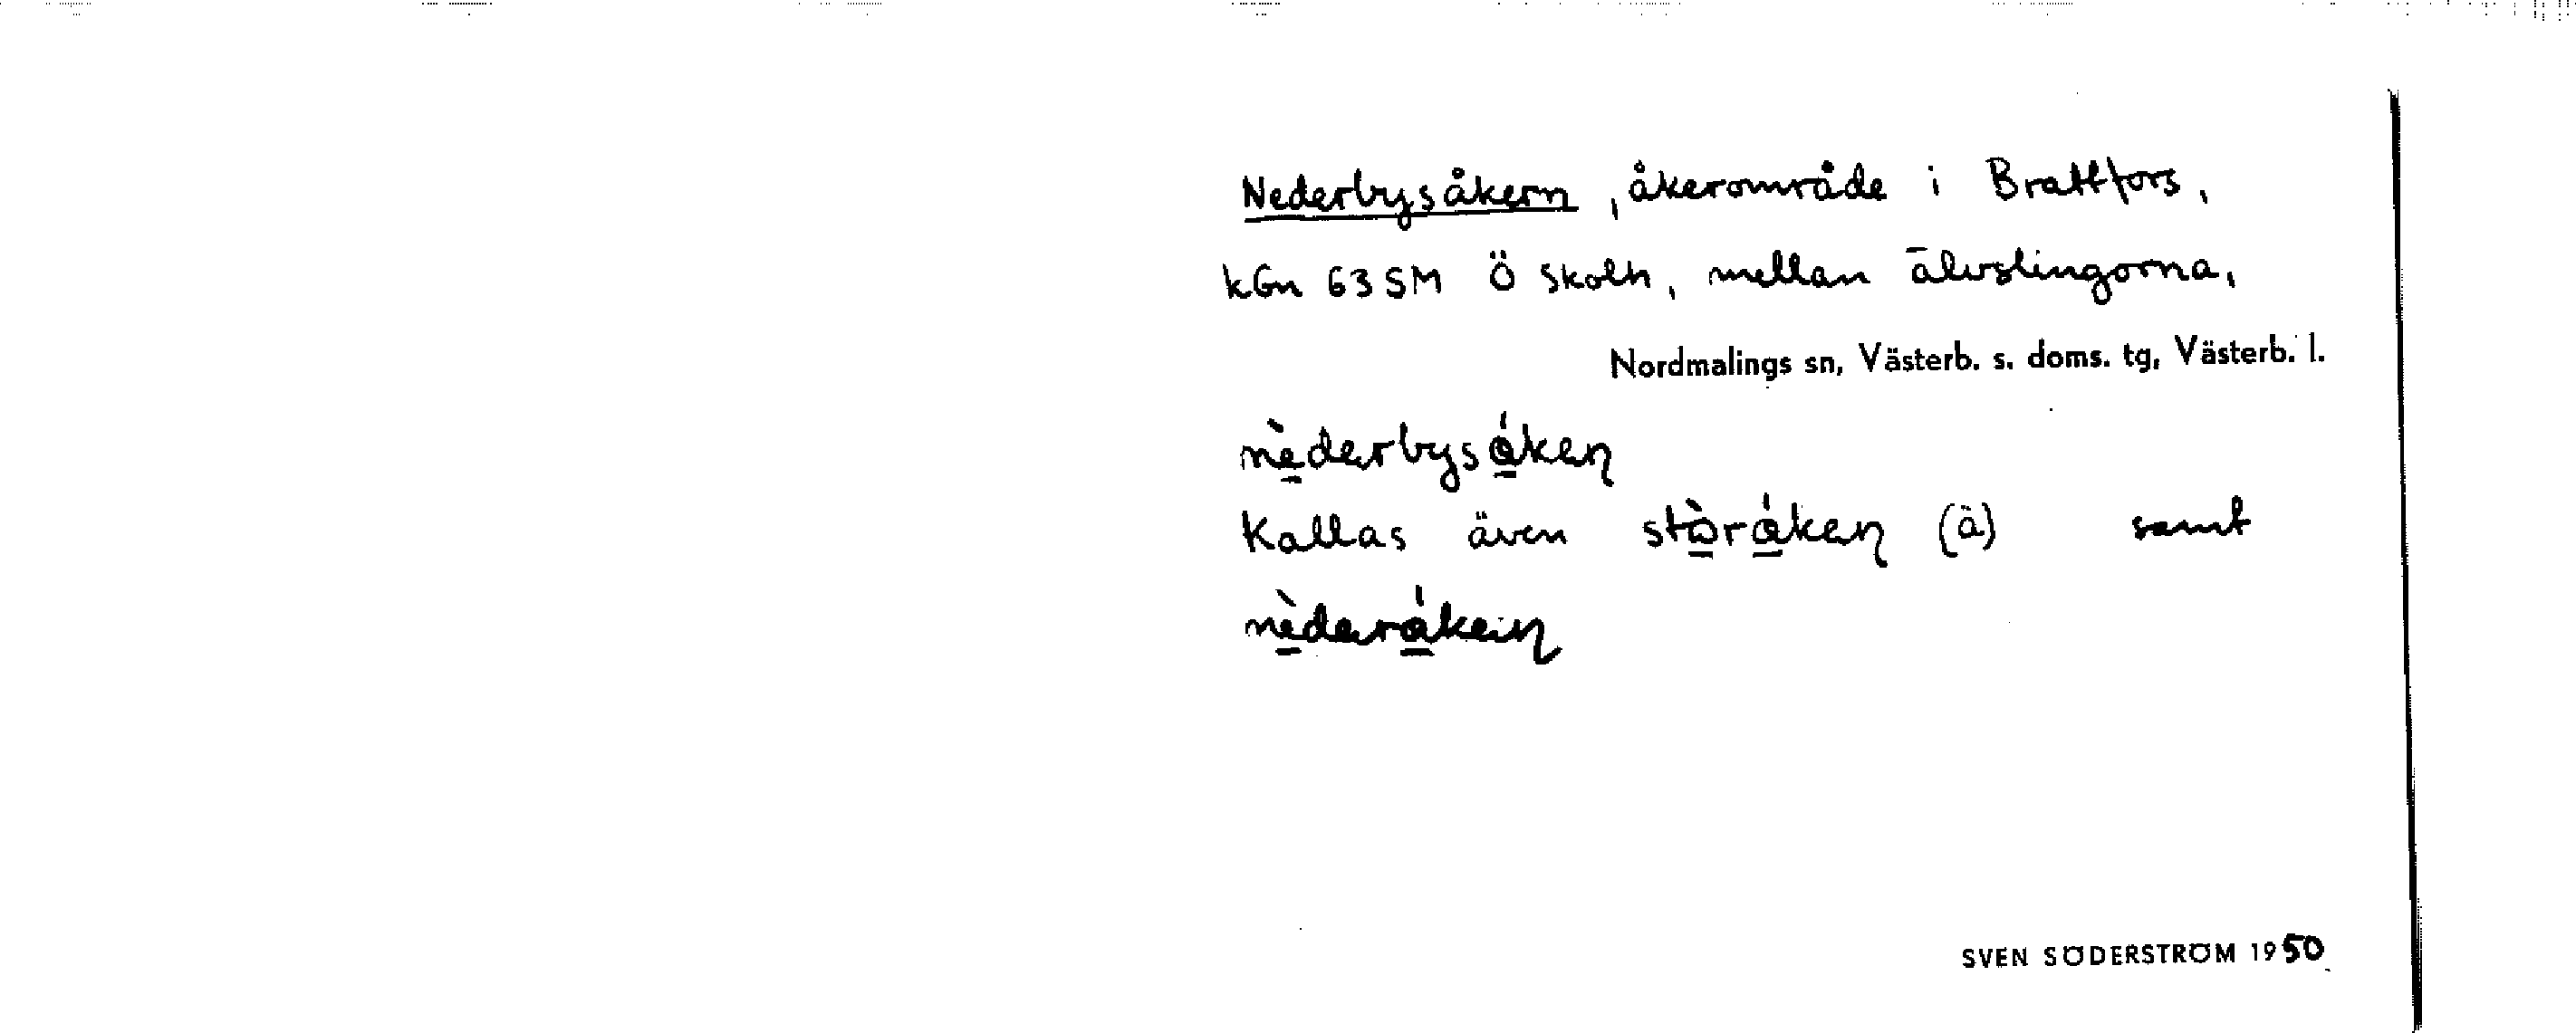 Nederbysåkern, åkerområde i Brattfors,
kGn 63 SM Ö Skolh, mellan älvslingorna,
Nordmalings sn, Västerb. s. doms. tg, Västerb. l.
nèderbysǻkeɳ
Kallas även stòråḱeɳ (à) samt
nèderåḱeɳ
SVEN SÖDERSTRÖM 1950